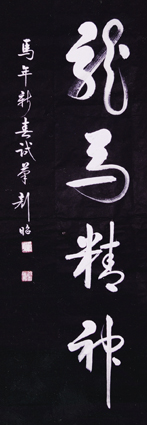 龍馬精神
馬年新春試筆劉昭